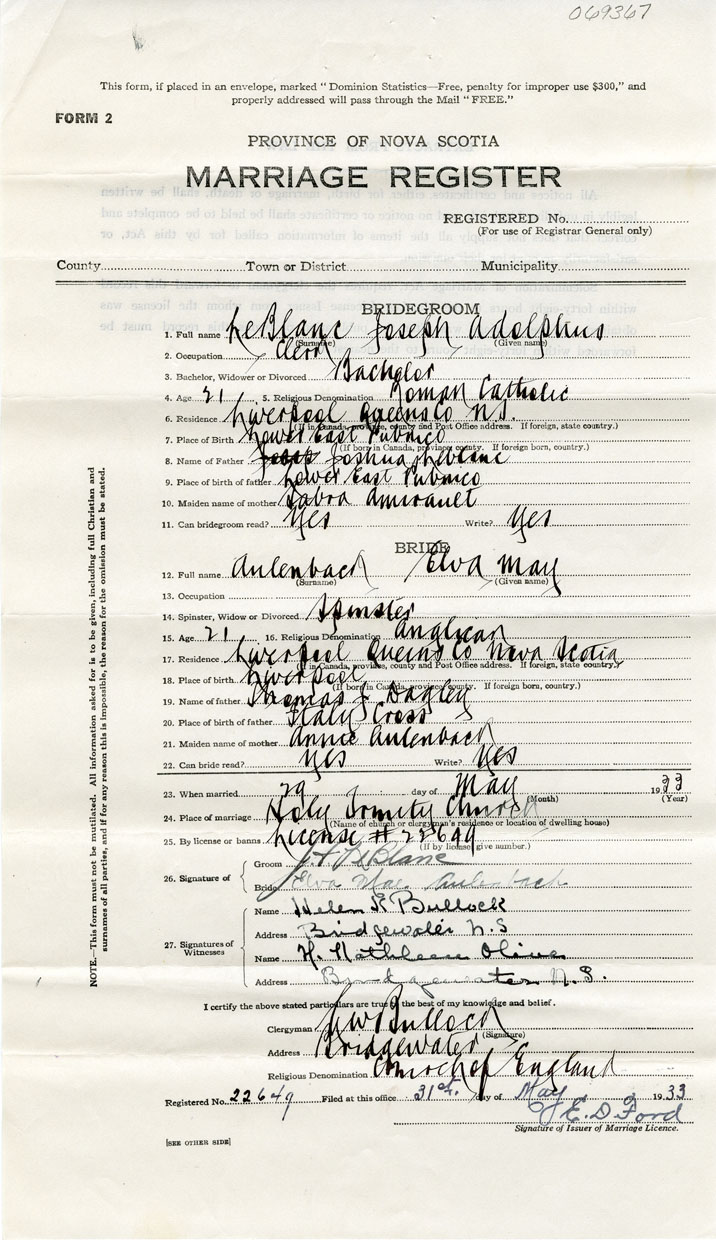 069367
This form, if placed in an envelope, marked "Dominion Statistics—Free, penalty for improper use $300," and
properly addressed will pass through the Mail "FREE."
FORM 2
PROVINCE OF NOVA SCOTIA
MARRIAGE REGISTER
REGISTERED No.
(For use of Registrar General only)
County Town or District Municipality
BRIDEGROOM
1. Full name LeBlanc Joseph Adolphus
(Surname) (Given name)
2. Occupation Clerk
3. Bachelor, Widower or Divorced Bachelor
4. Age 21 5. Religious Denomination Roman Catholic
6. Residence Liverpool Queens Co N.S.
(If in Canada, province, county and Post Office address. If foreign, state country.)
7. Place of Birth Lower East Pubnico
(If born in Canada, province, county. If foreign born, country.)
8. Name of Father Joshua LeBlanc
9. Place of birth of father Lower East Pubnico
10. Maiden name of mother Sabra Amirault
11. Can bridegroom read? Yes Write? Yes
BRIDE
12. Full name Aulenback Elva May
(Surname) (Given name)
13. Occupation
14. Spinster, Widow or Divorced Spinster
15. Age 21 16. Religious Denomination Anglican
17. Residence Liverpool Queens Co Nova Scotia
(If in Canada, province, county and Post Office address. If foreign, state country.)
18. Place of birth Liverpool
(If born in Canada, province, county. If foreign born, country.)
19. Name of father Thomas J. Dagley
20. Place of birth of father Italy Cross
21. Maiden name of mother Annie Aulenback
22. Can bride read? Yes Write? Yes
23. When married 29 day of May 1933
(Month) (Year)
24. Place of marriage Holy Trinity Church
(Name of church or clergyman's residence or location of dwelling house)
25. By license or banns License # 22649
(If by license, give number.)
26. Signature of Groom J A LeBlanc
Bride Elva Mae Aulenback
27. Signatures of Witnesses
Name Helen R Bullock
Address Bridgewater N.S
Name H. Kathleen Oliver
Address Bridgewater N.S.
I certify the above stated particulars are true to the best of my knowledge and belief.
Clergyman Bullock
(Signature)
Address Bridgewater
Religious Denomination Church of England
Registered No. 22649 Filed at this office 31st. day of May 1933
E. D. Ford
Signature of Issuer of Marriage Licence.
[SEE OTHER SIDE]
NOTE.—This form must not be mutilated. All information asked for is to be given, including full Christian and
surnames of all parties, and if for any reason this is impossible, the reason for the omission must be stated.